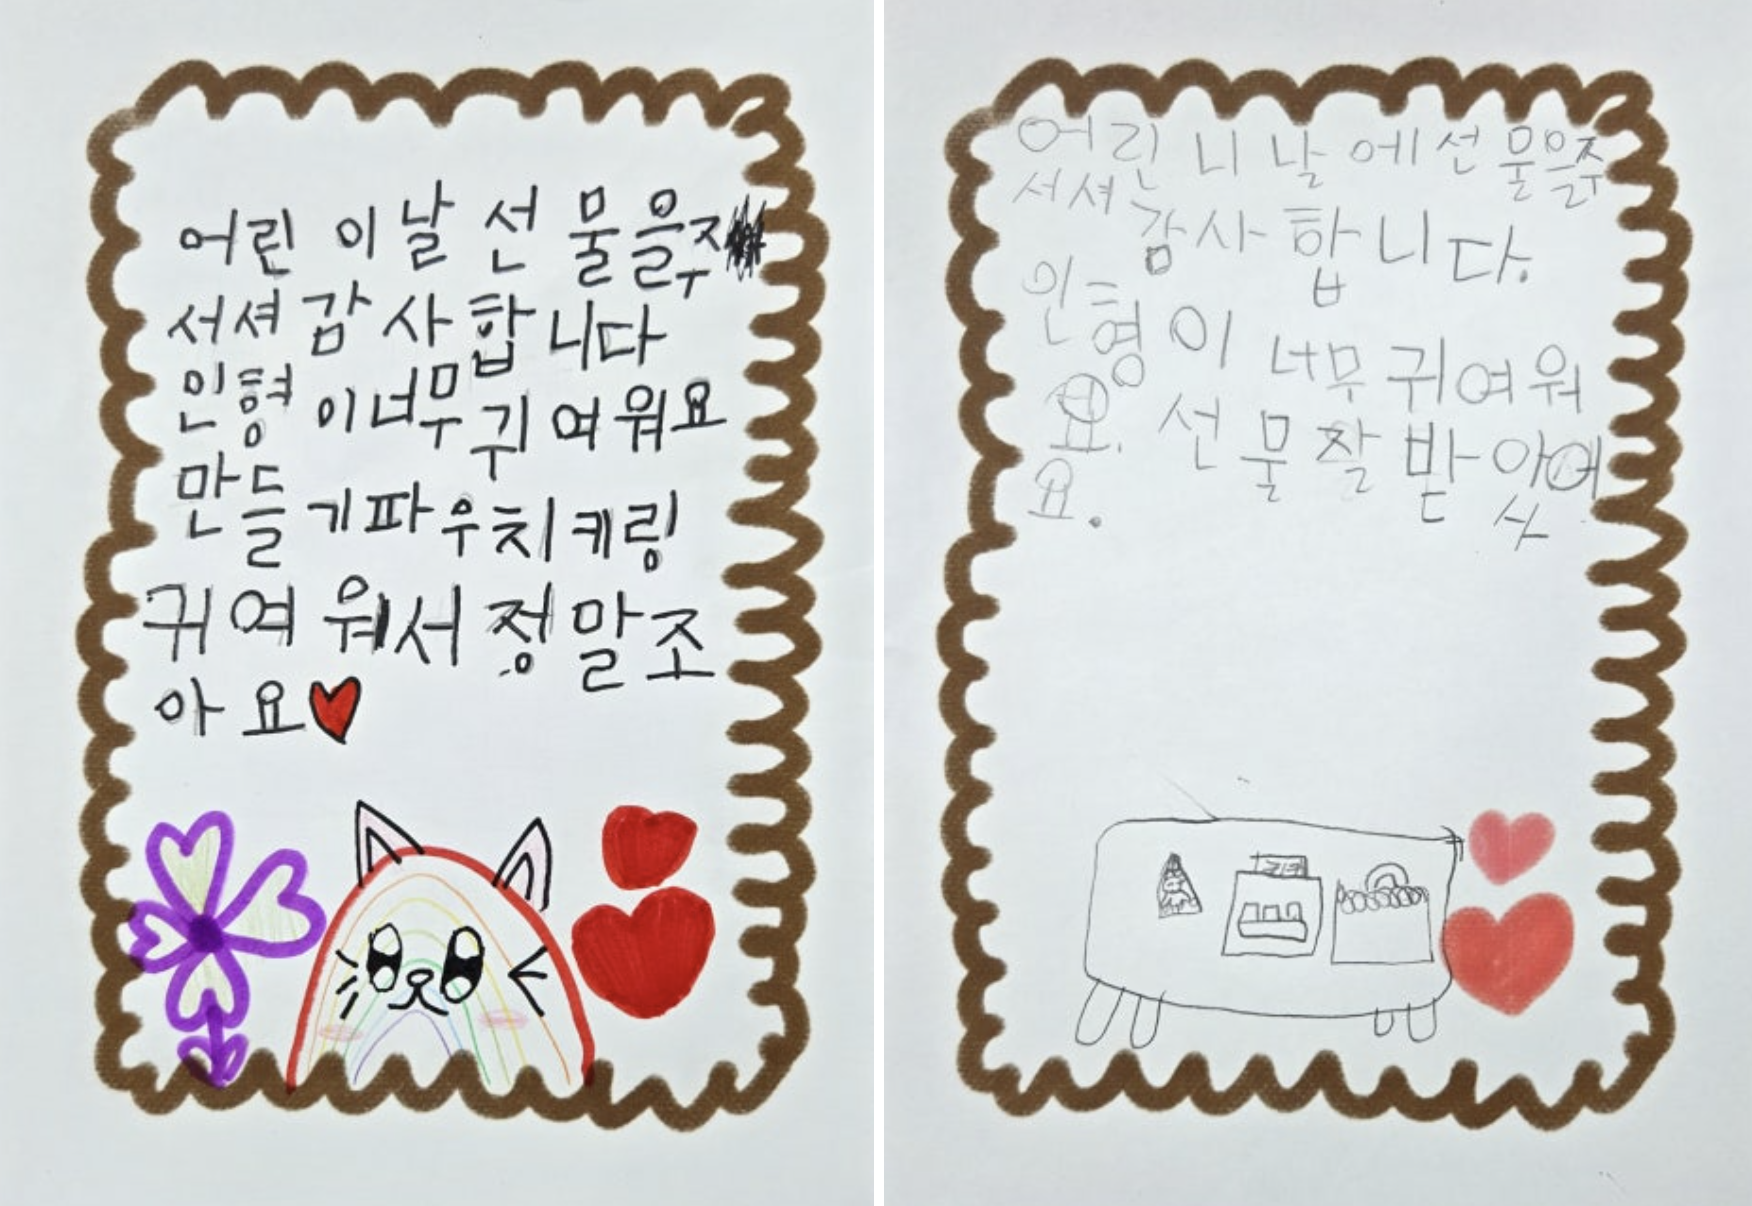 어린이날 선물을주
서셔 감사합니다
인형이너무귀여워요
만들기파우치키링
귀여워서 정말조
아요
어린니날에선물을주
서셔감사합니다.
인형이 너무귀여워
요. 선물잘받앗어
요.